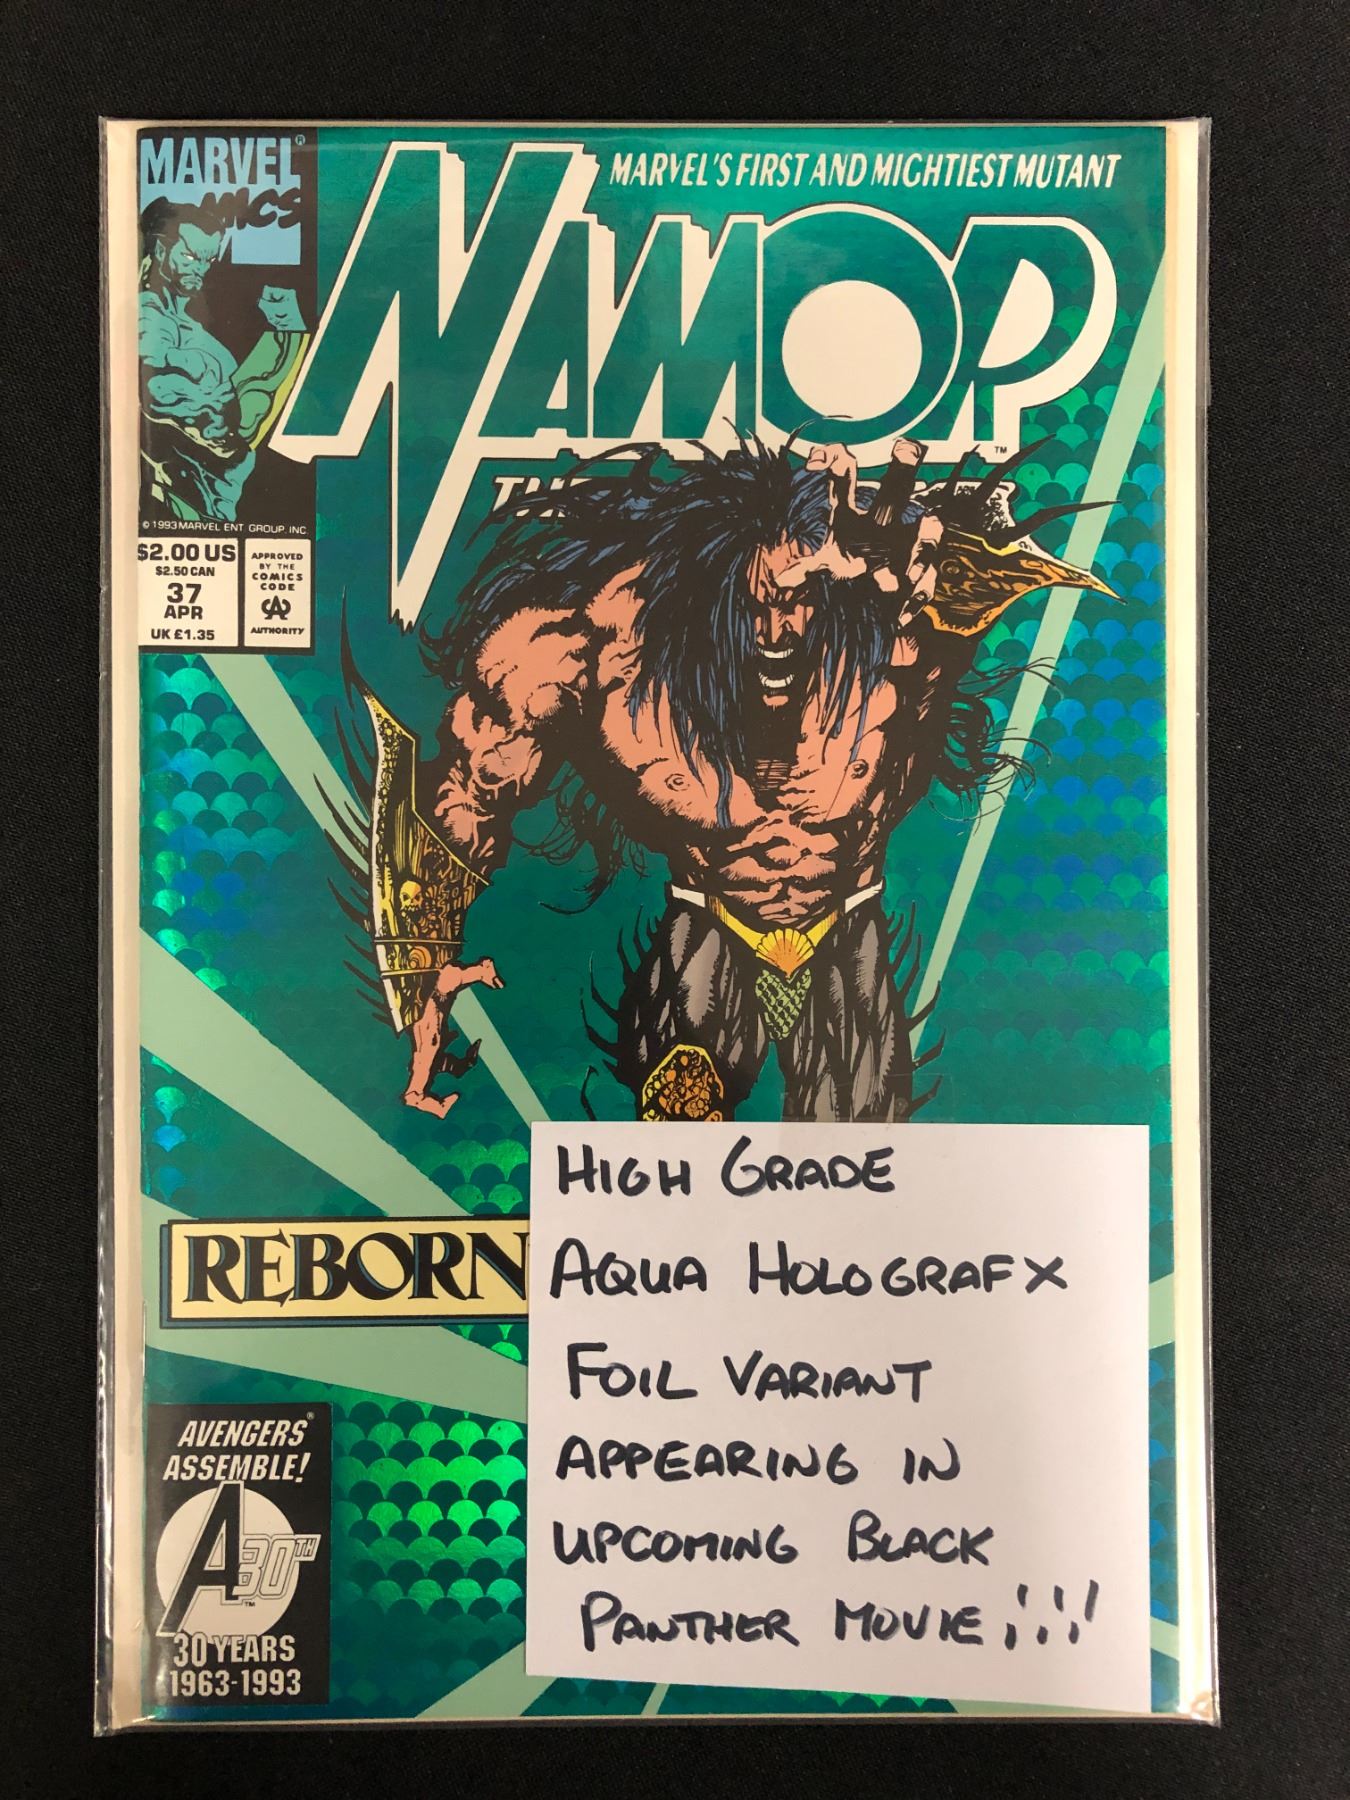 MARVEL®
COMICS
MARVEL'S FIRST AND MIGHTIEST MUTANT
NAMOR
TM
THE
© 1993 MARVEL ENT GROUP, INC.
$2.00 US
$2.50 CAN
37
APR
UK £1.35
APPROVED
BY THE
COMICS
CODE
CA
AUTHORITY
REBORN
AVENGERS®
ASSEMBLE!
A30TH
TM
30 YEARS
1963-1993
HIGH GRADE
AQUA HOLOGRAFX
FOIL VARIANT
APPEARING IN
UPCOMING BLACK
PANTHER MOVIE !!!